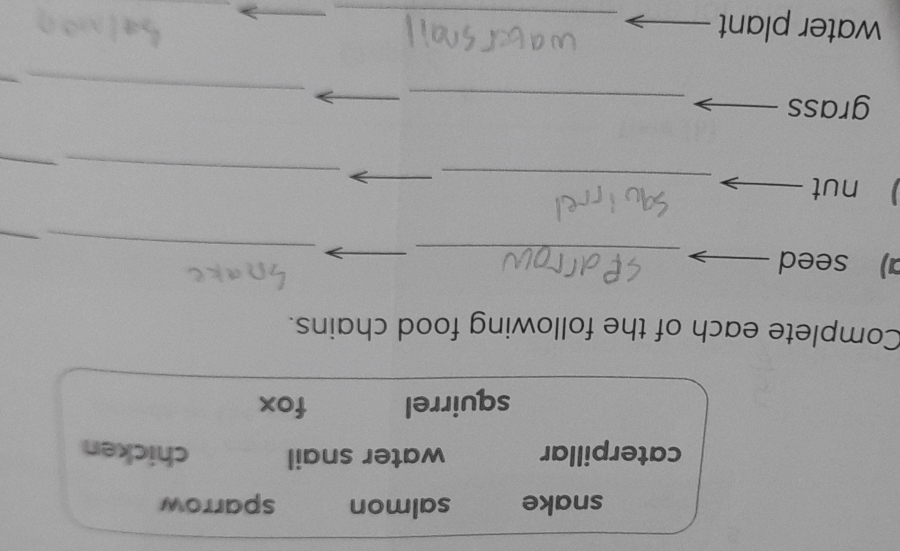 snake salmon sparrow
caterpillar water snail chicken
squirrel fox
Complete each of the following food chains.
a) seed → sparrow → snake
) nut → squirrel →
grass → →
water plant → water snail → salmon